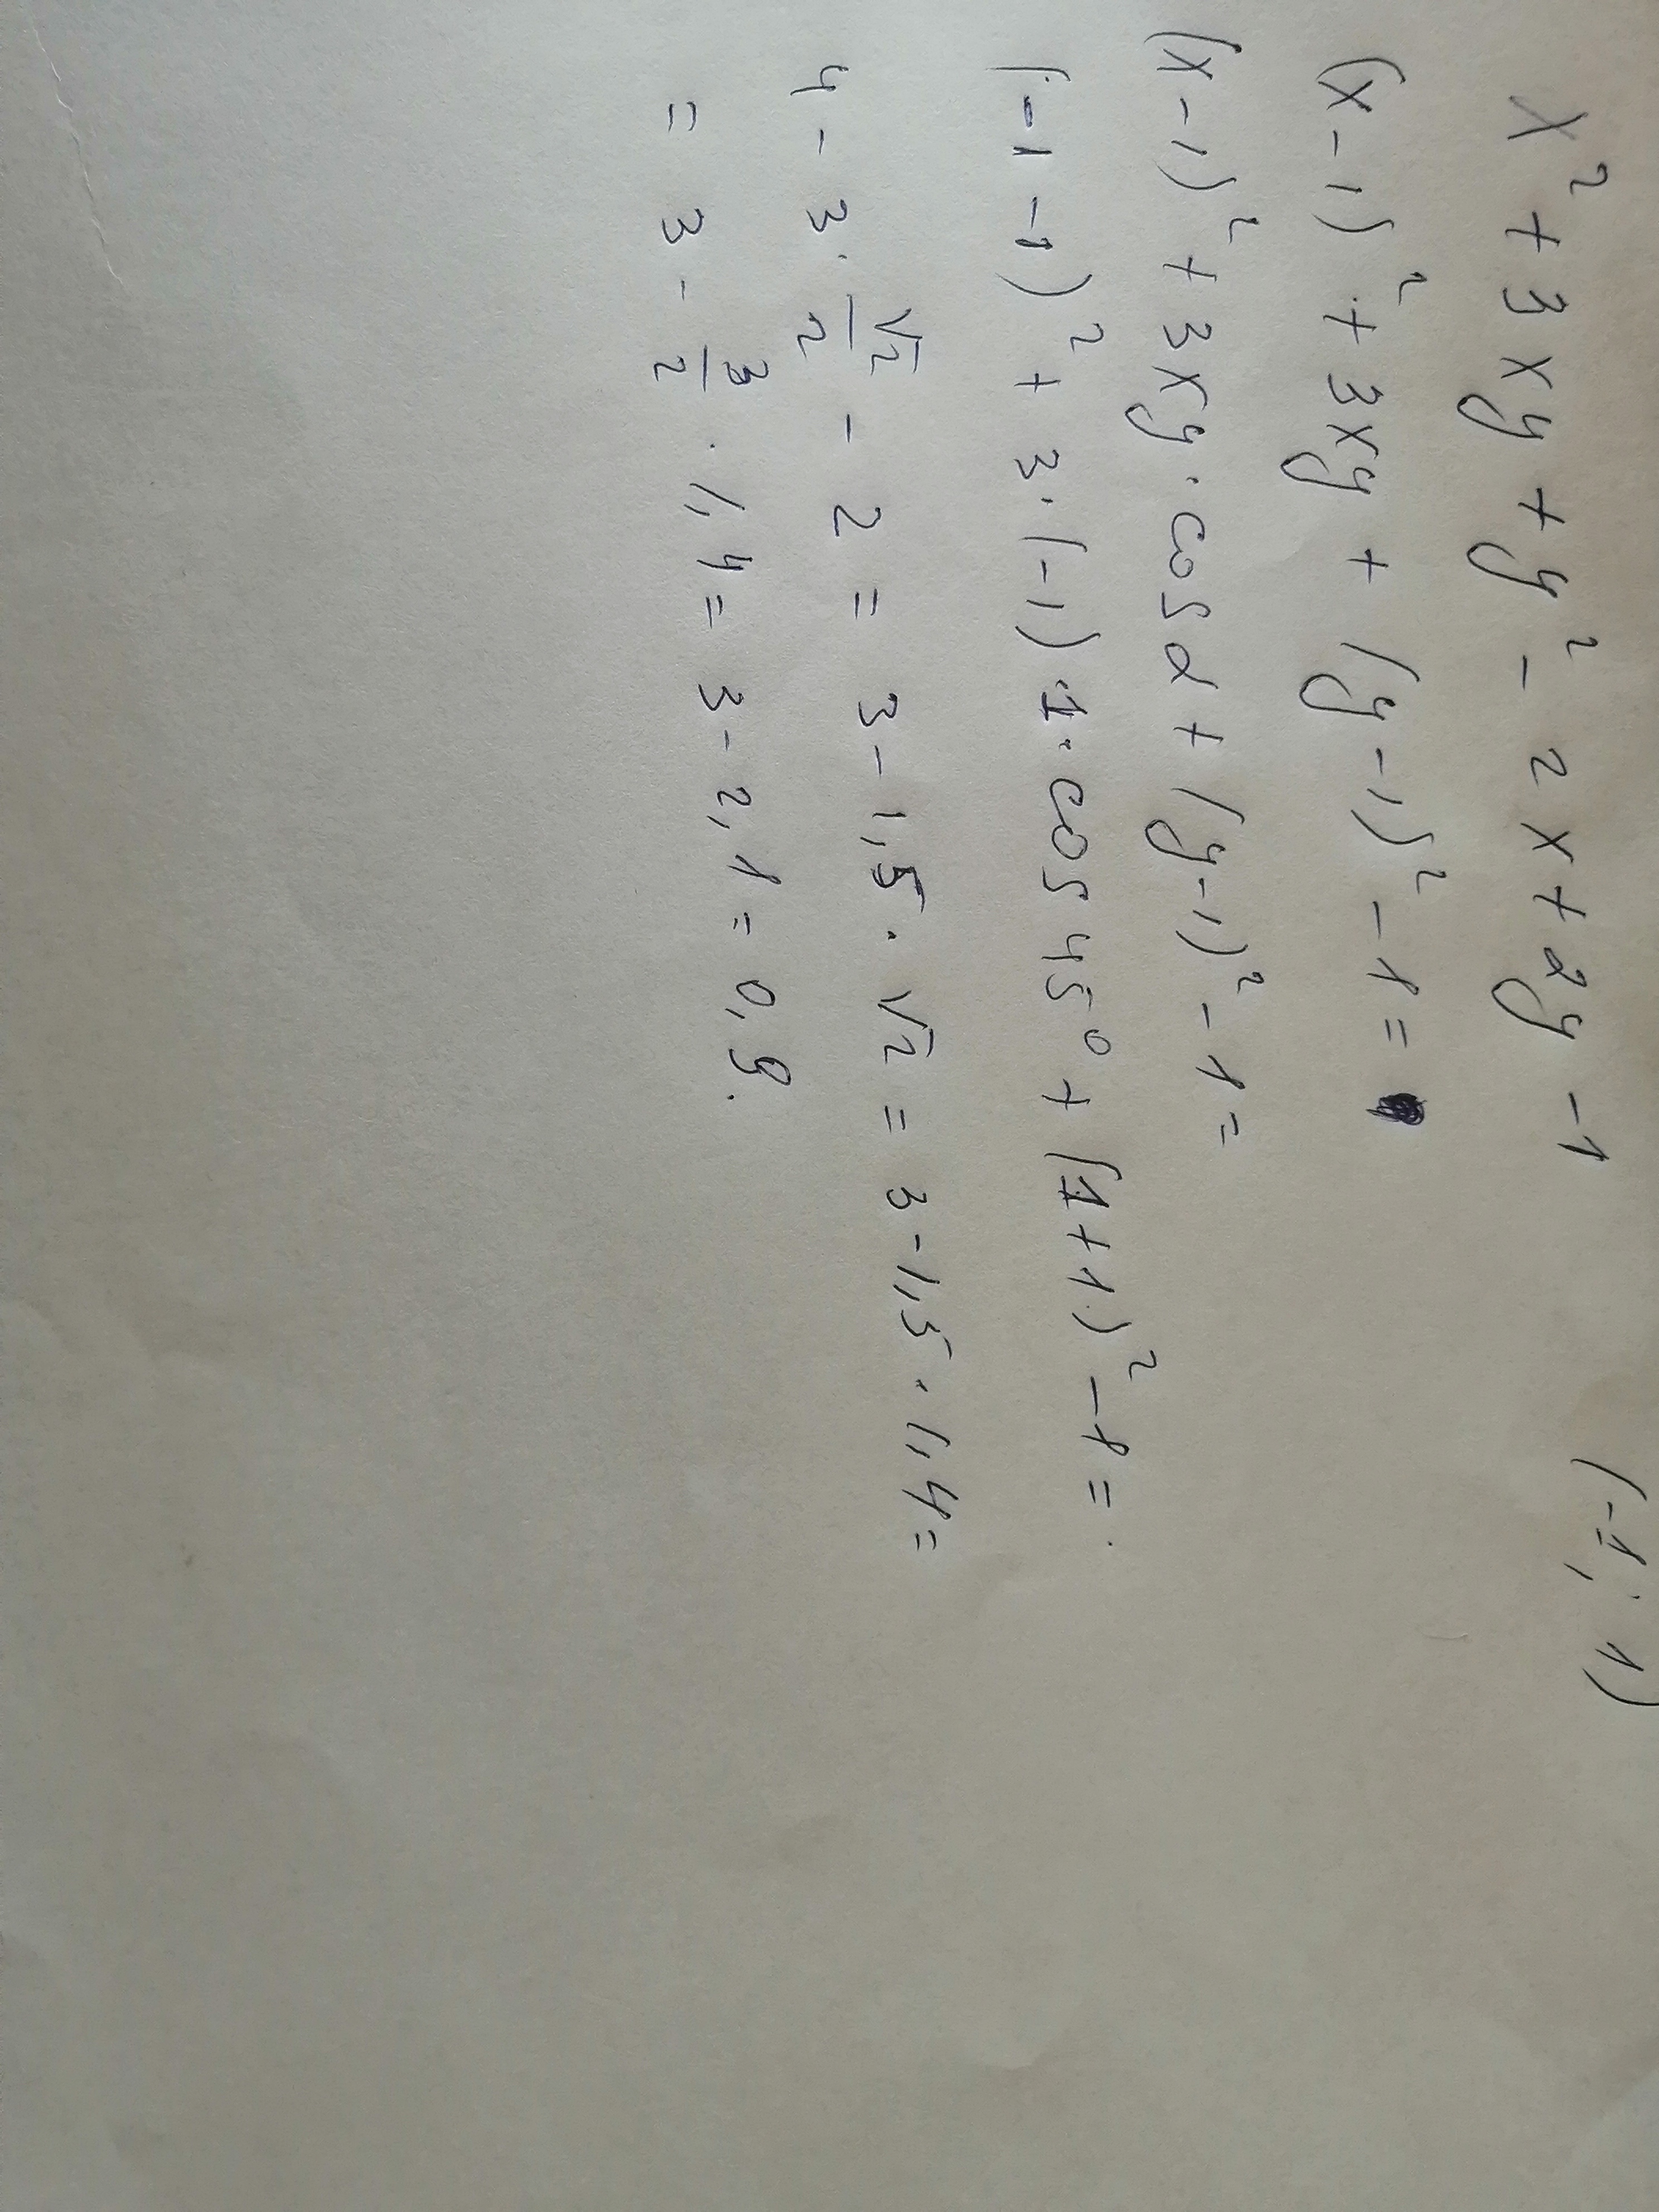 x² + 3xy + y² - 2x + 2y - 1 (-1; 1)
(x - 1)² + 3xy + (y - 1)² - 1 =
(x - 1)² + 3xy · cos α + (y - 1)² - 1 =
(-1 -1)² + 3 · (-1) · 1 · cos 45° + (1 + 1)² - 1 =
4 - 3 · √2/2 - 2 = 3 - 1,5 · √2 = 3 - 1,5 · 1,4 =
= 3 - 3/2 · 1,4 = 3 - 2,1 = 0,9.